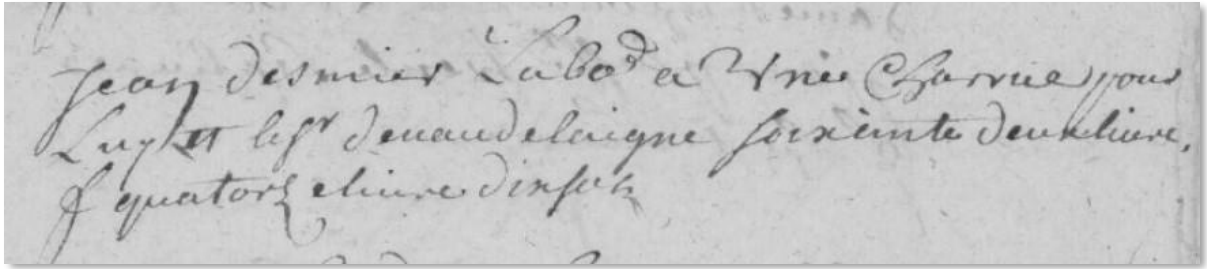 Jean desmier Labo^d a Vne Charrue pour
Luy et le s^r devaudelaigne soixante deux livre,
f quatorze livre dix solz